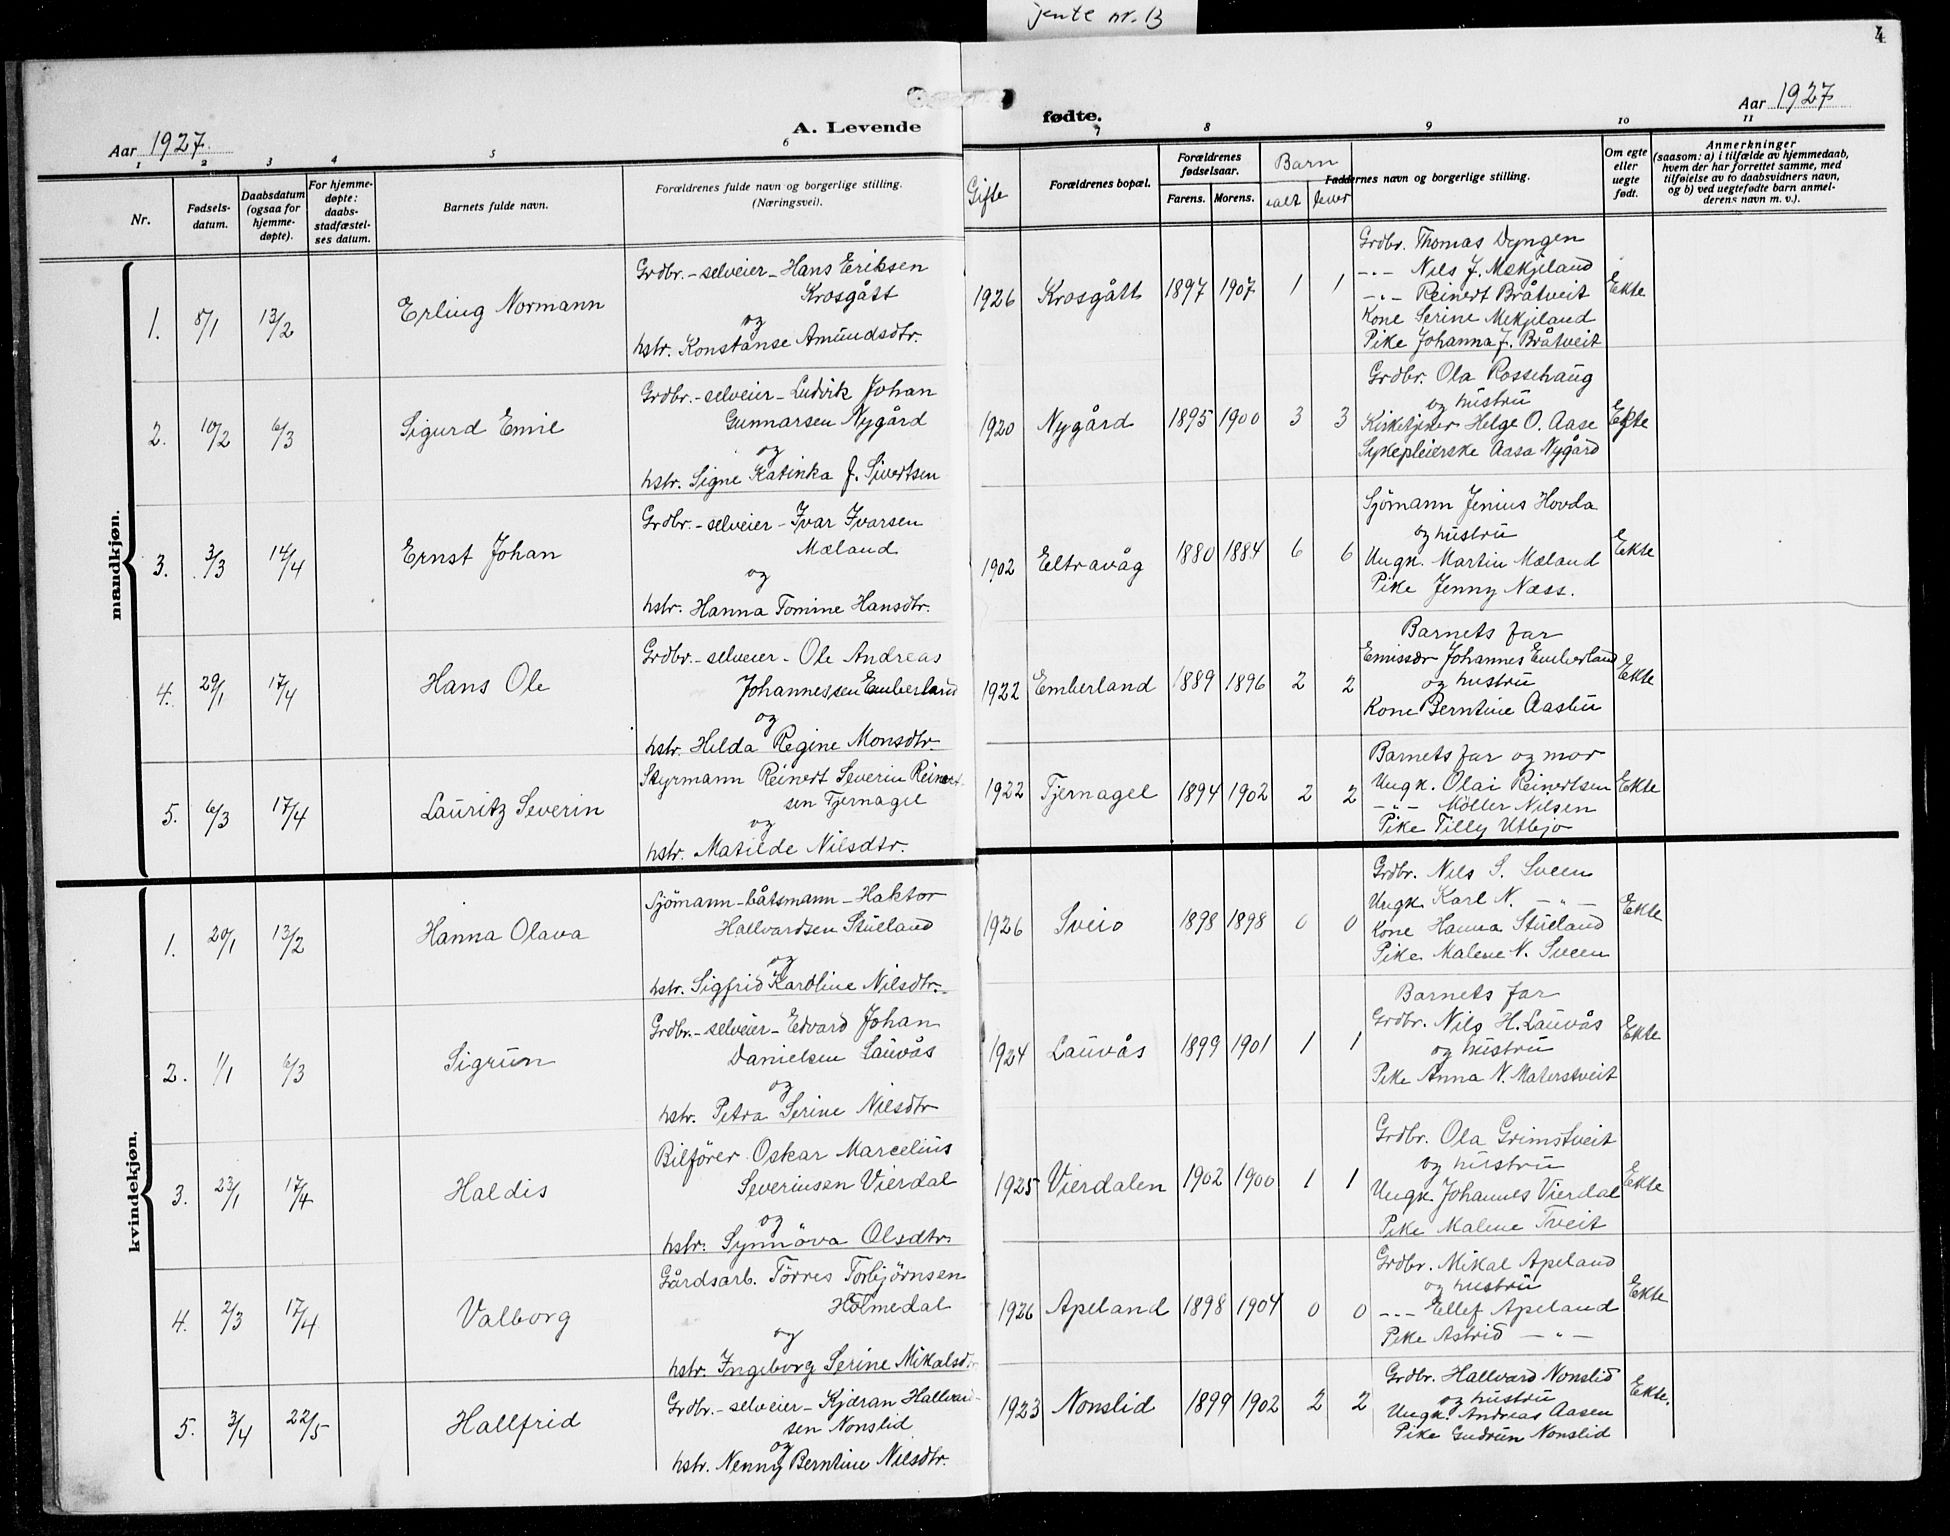 jente nr. 13
4
Aar 1927.
A. Levende
fødte.
Aar 1927
1 2 3 4 5 6 7 8 9 10 11
Nr.
Fødsels-
datum.
Daabsdatum
(ogsaa for
hjemme-
døpte).
For hjemme-
døpte:
daabs-
stadfæstel-
ses datum.
Barnets fulde navn.
Forældrenes fulde navn og borgerlige stilling.
(Næringsvei).
Gifte
Forældrenes bopæl.
Forældrenes
fødselsaar.
Farens. Morens.
Barn
ialt lever
Faddernes navn og borgerlige stilling.
Om egte
eller
uegte
født.
Anmerkninger
(saasom: a) i tilfælde av hjemmedaab,
hvem der har forrettet samme, med
tilføielse av to daabsvidners navn,
og b) ved uegtefødte barn anmel-
derens navn m. v.).
mandkjøn.
1. 8/1 13/2 Erling Normann
Grdbr. - selveier - Hans Eriksen
Krosgått
og
hstr. Konstanse Amundsdtr.
1926 Krosgått 1897 1907 1 1
Grdbr. Thomas Dyngen
-"- Nils J. Mekjeland
-"- Reinert Bråtveit
Kone Serine Mekjeland
Pike Johanna J. Bråtveit
Ekte
2. 10/2 6/3 Sigurd Emil
Grdbr. - selveier - Ludvik Johan
Gunnarsen Nygård
og
hstr. Signe Katinka J. Sivertsen
1920 Nygård 1895 1900 3 3
Grdbr. Ola Rossehaug
og hustru
Kirketjener Helge O. Aase
Sykepleierske Aasa Nygård
Ekte
3. 3/3 14/4 Ernst Johan
Grdbr. - selveier - Ivar Ivarsen
Mæland
og
hstr. Hanna Tomine Hansdtr.
1902 Eltravåg 1880 1884 6 6
Sjömann Jenius Hovda
og hustru
Ungk. Martin Mæland
Pike Jenny Næss.
Ekte
4. 29/1 17/4 Hans Ole
Grdbr. - selveier - Ole Andreas
Johannessen Emberland
og
hstr. Hilda Regine Monsdtr.
1922 Emberland 1889 1896 2 2
Barnets far
Emissær Johannes Emberland
og hustru
Kone Berntine Aasbu
Ekte
5. 6/3 17/4 Lauritz Severin
Styrmann Reinert Severin Reinert-
sen Tjernagel
og
hstr. Matilde Nilsdtr.
1922 Tjernagel 1894 1902 2 2
Barnets far og mor
Ungk. Olai Reinertsen
-"- Möller Nilsen
Pike Tilly Utbjo
Ekte
kvindekjøn.
1. 20/1 13/2 Hanna Olava
Sjömann - båtsmann - Haktor
Hallvardsen Stueland
og
hstr. Sigfrid Karoline Nilsdtr.
1926 Sveio 1898 1898 0 0
Grdbr. Nils S. Sveen
Ungk. Karl N. -"-
Kone Hanna Stueland
Pike Malene N. Sveen
Ekte
2. 1/1 6/3 Sigrun
Grdbr. - selveier - Edvard Johan
Danielsen Lauvås
og
hstr. Petra Serine Nilsdtr
1924 Lauvås 1899 1901 1 1
Barnets far
Grdbr. Nils H. Lauvås
og hustru
Pike Anna N. Materstveit
Ekte
3. 23/1 17/4 Haldis
Bilförer Oskar Marcelius
Severinsen Vierdal
og
hstr. Synnöva Olsdtr.
1925 Vierdalen 1902 1900 1 1
Grdbr. Ola Grimstveit
og hustru
Ungk. Johannes Vierdal
Pike Malene Tveit
Ekte
4. 2/3 17/4 Valborg
Gårdsarb. Törres Torbjörnsen
Holmedal
og
hstr. Ingeborg Serine Mikalsdtr
1926 Apeland 1898 1904 0 0
Grdbr. Mikal Apeland
og hustru
-"- Ellef Apeland
Pike Astrid -"-
Ekte
5. 3/4 22/5 Hallfrid
Grdbr. - selveier - Kjdran Hallvard-
sen Nonslid
og
hstr. Nenny Berntine Nilsdtr.
1923 Nonslid 1899 1902 2 2
Grdbr. Hallvard Nonslid
og hustru
Ungk. Andreas Aasen
Pike Gudrun Nonslid
Ekte.